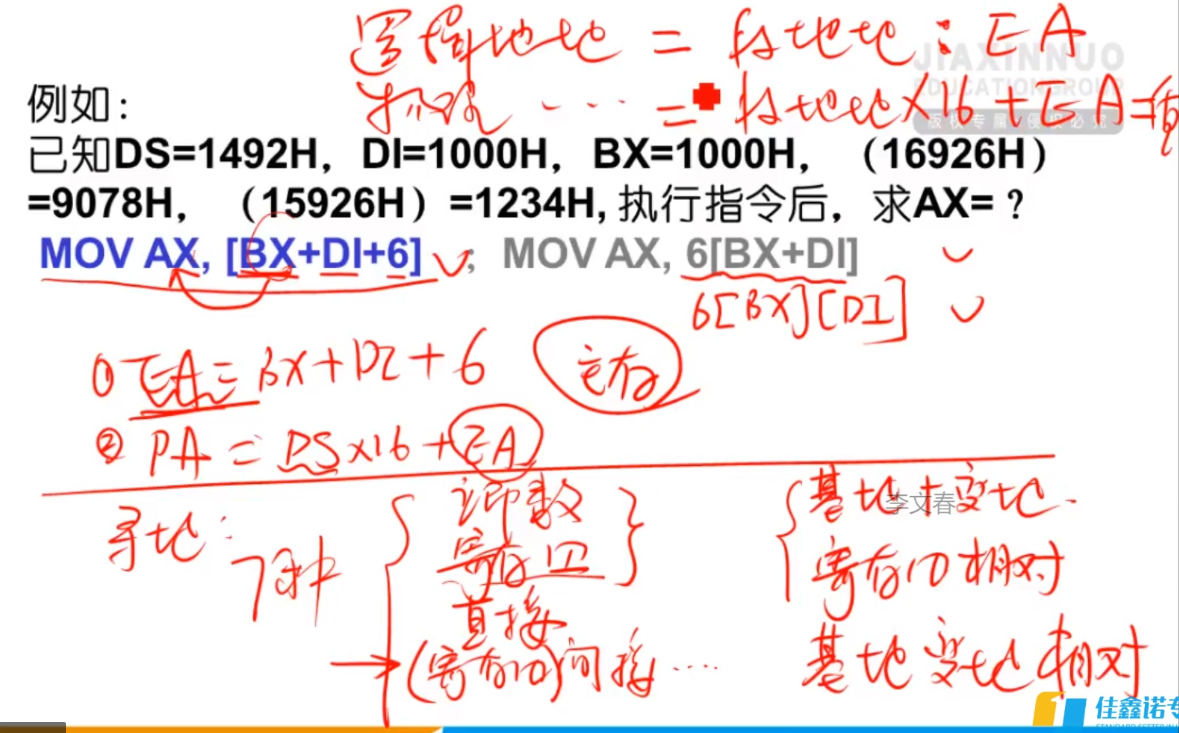 逻辑地址 = 段地址:EA
JIAXINNUO
EDUCATIONGROUP
物理 ... = 段地址×16+EA=
版权专属 侵权必究
例如:
已知DS=1492H,DI=1000H,BX=1000H,(16926H)
=9078H,(15926H)=1234H,执行指令后,求AX=?
MOV AX, [BX+DI+6] ; MOV AX, 6[BX+DI]
6[BX][DI]
① EA=BX+DI+6 主存
② PA=DS×16+EA
寻址: 7种
立即数
寄存器
直接
(寄存器)间接 ....
基址+变址.
李文春
寄存器相对
基址变址相对
佳鑫诺专